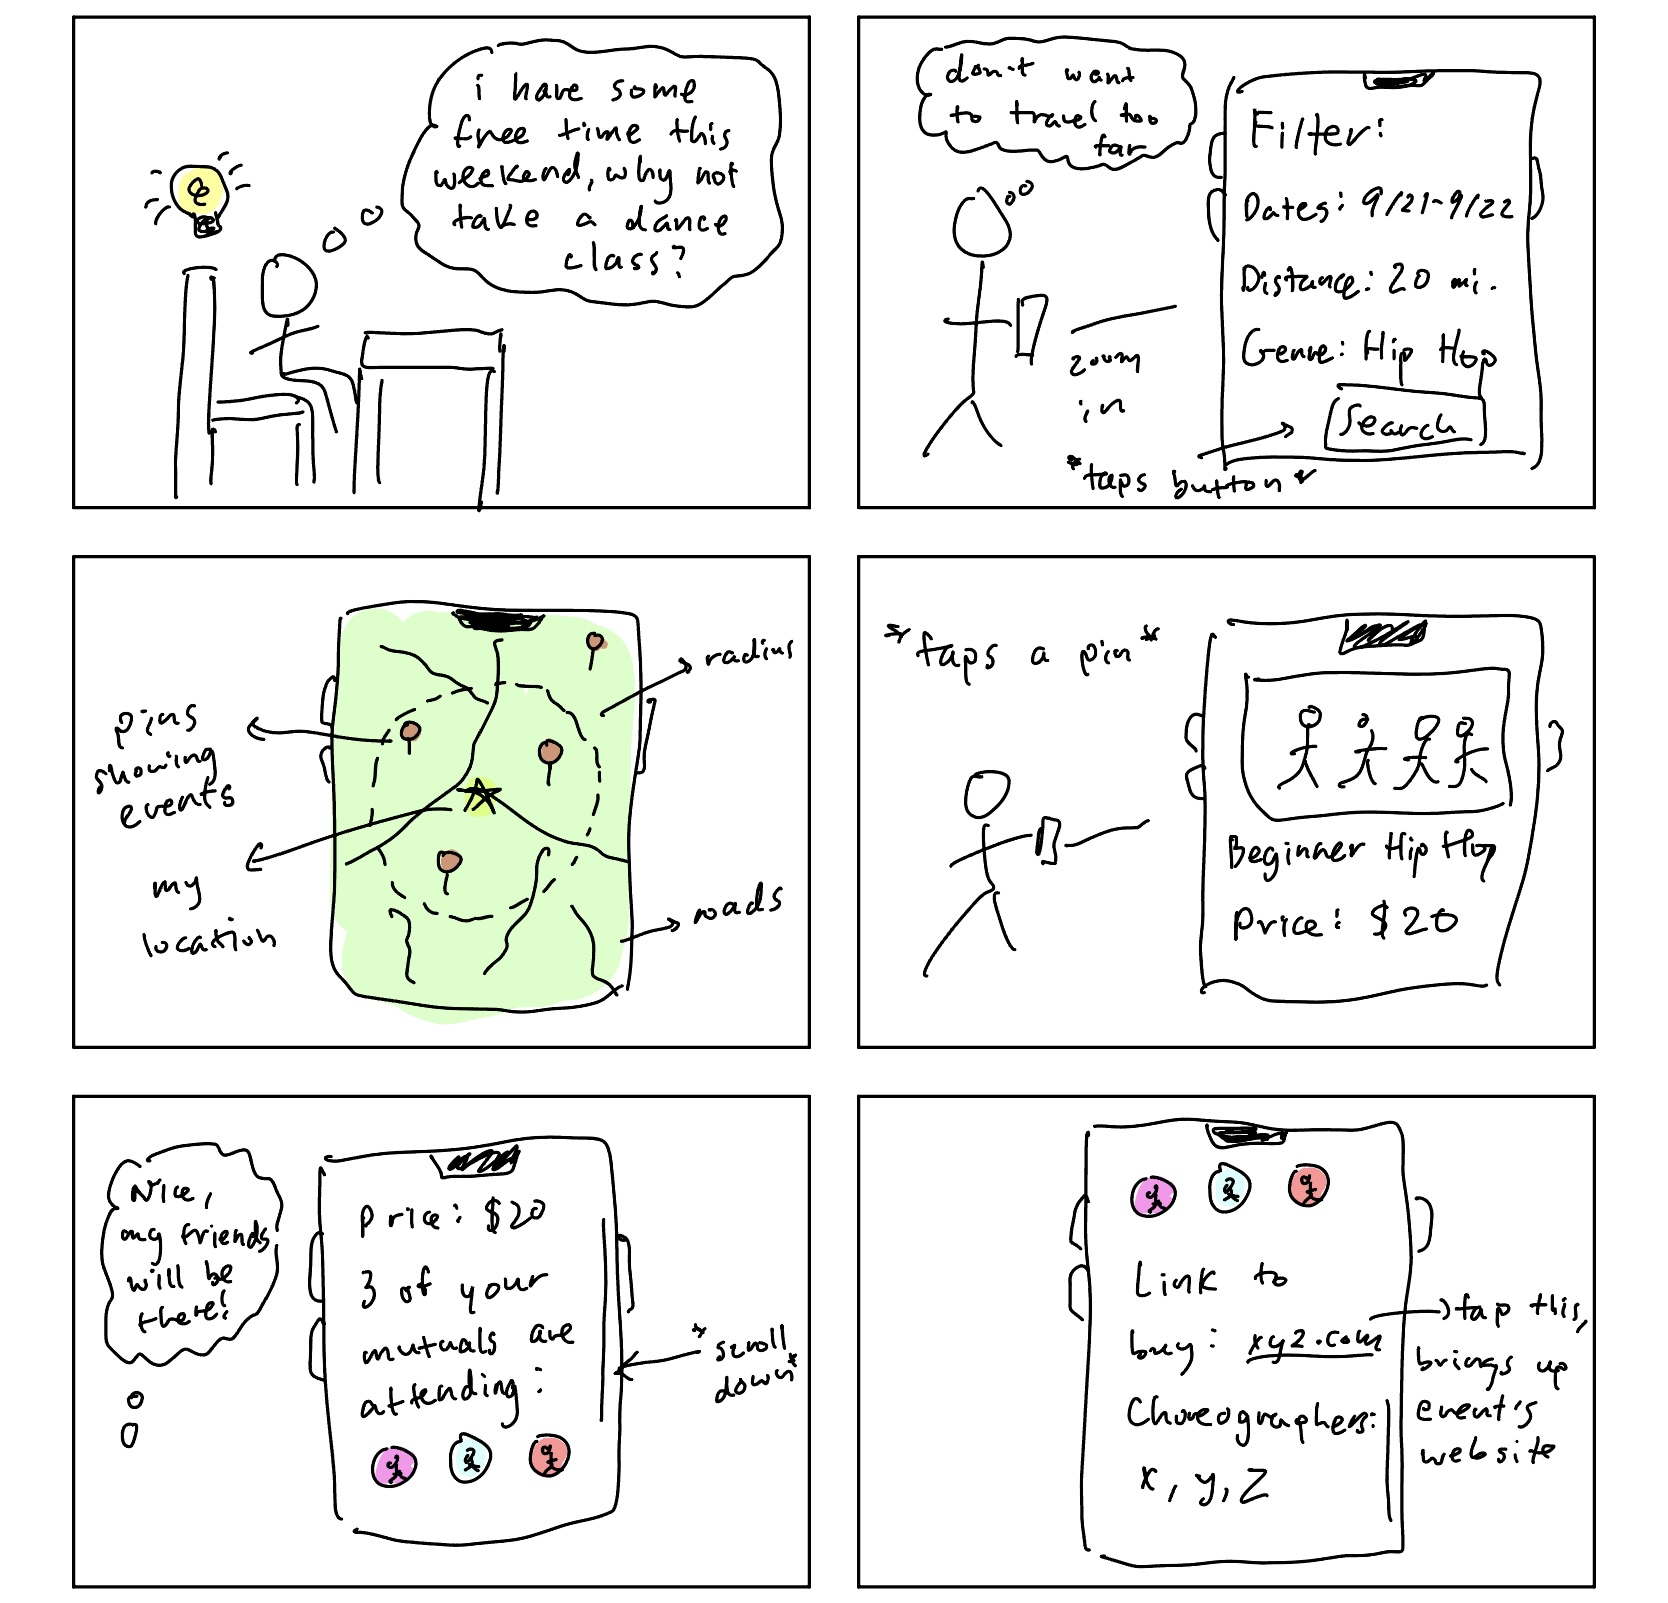 i have some
free time this
weekend, why not
take a dance
class?
don't want
to travel too
far
Filter:
Dates: 9/21-9/22
Distance: 20 mi.
Genre: Hip Hop
Search
zoom
in
*taps button*
radius
pins
showing
events
my
location
roads
*taps a pin*
Beginner Hip Hop
Price: $20
Nice,
my friends
will be
there!
Price: $20
3 of your
mutuals are
attending:
*scroll
down*
Link to
buy: xyz.com
Choreographers:
x, y, z
tap this,
brings up
event's
website